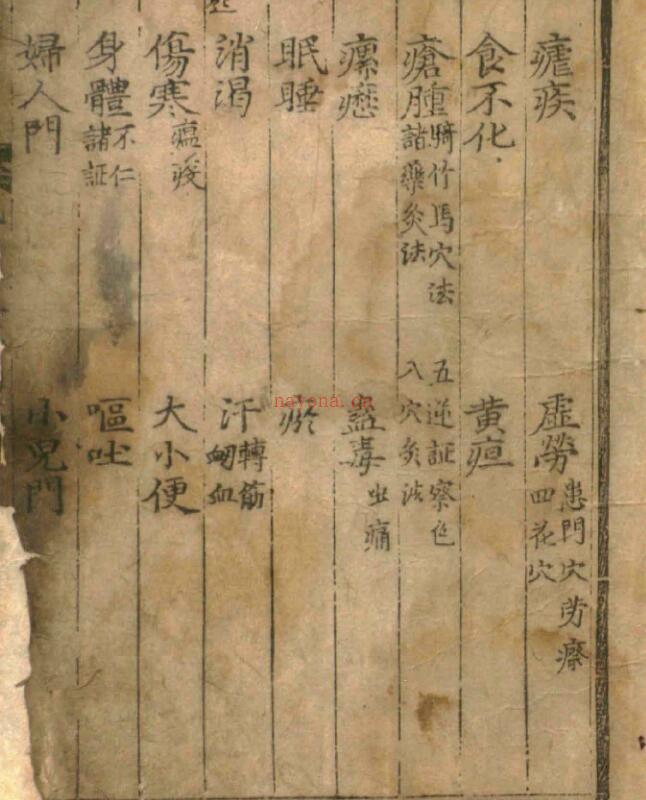 瘧疾　虛勞 患門穴 劳瘵 四花穴
食不化　黄疸
瘡腫 騎竹馬穴法 諸藥灸法 五逆証察色 八穴灸法
瘰　蠱毒 虫痛
眠睡　瘀
消渴　汗 轉筋 衂血
傷寒 瘟疫　大小便
身體 不仁 諸証　嘔吐
婦人門　小兒門
nayona.cn